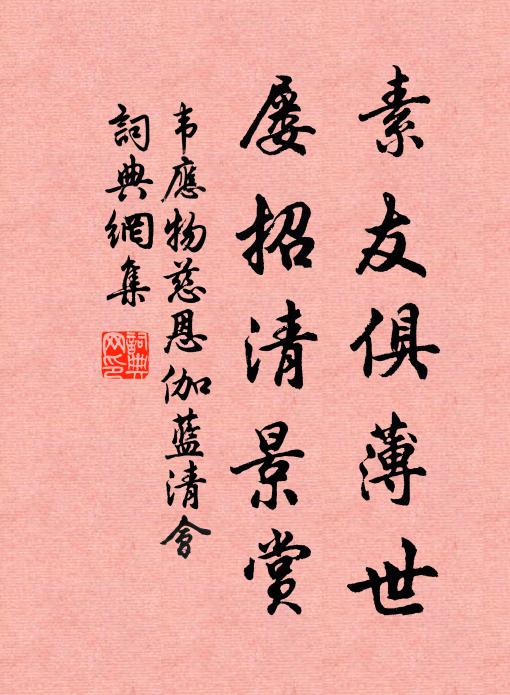 素友俱薄世
屡招清景赏
韦應物慈恩伽藍清會
詞典網集
詞典網印